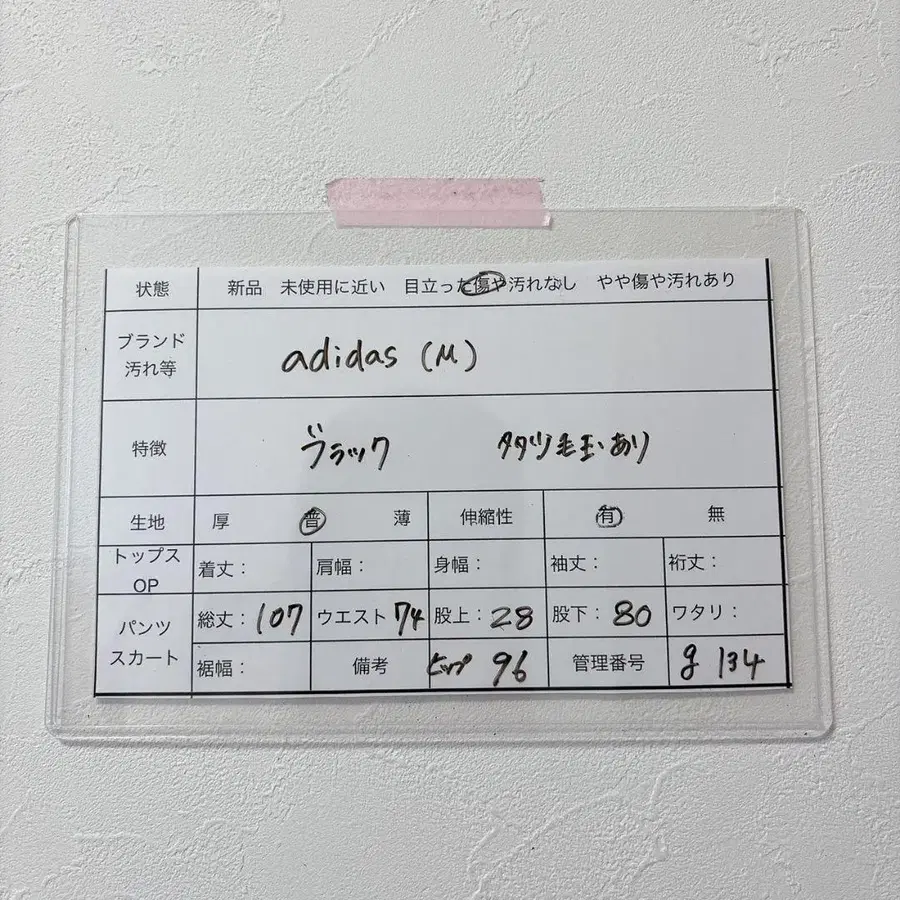 状態 新品 未使用に近い 目立った傷や汚れなし やや傷や汚れあり
ブランド
汚れ等
adidas (M)
特徴 ブラック 毛玉あり
生地 厚 普 薄 伸縮性 有 無
トップス
OP
着丈: 肩幅: 身幅: 袖丈: 裄丈:
パンツ
スカート
総丈: 107 ウエスト 74 股上: 28 股下: 80 ワタリ:
裾幅: 備考 ヒップ 96 管理番号 g 134